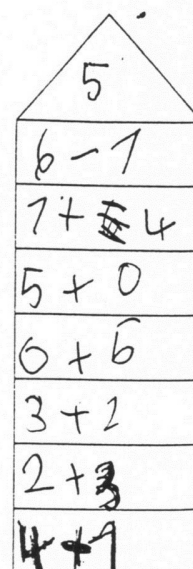 5
6-1
1+4
5+0
0+5
3+2
2+3
4+1